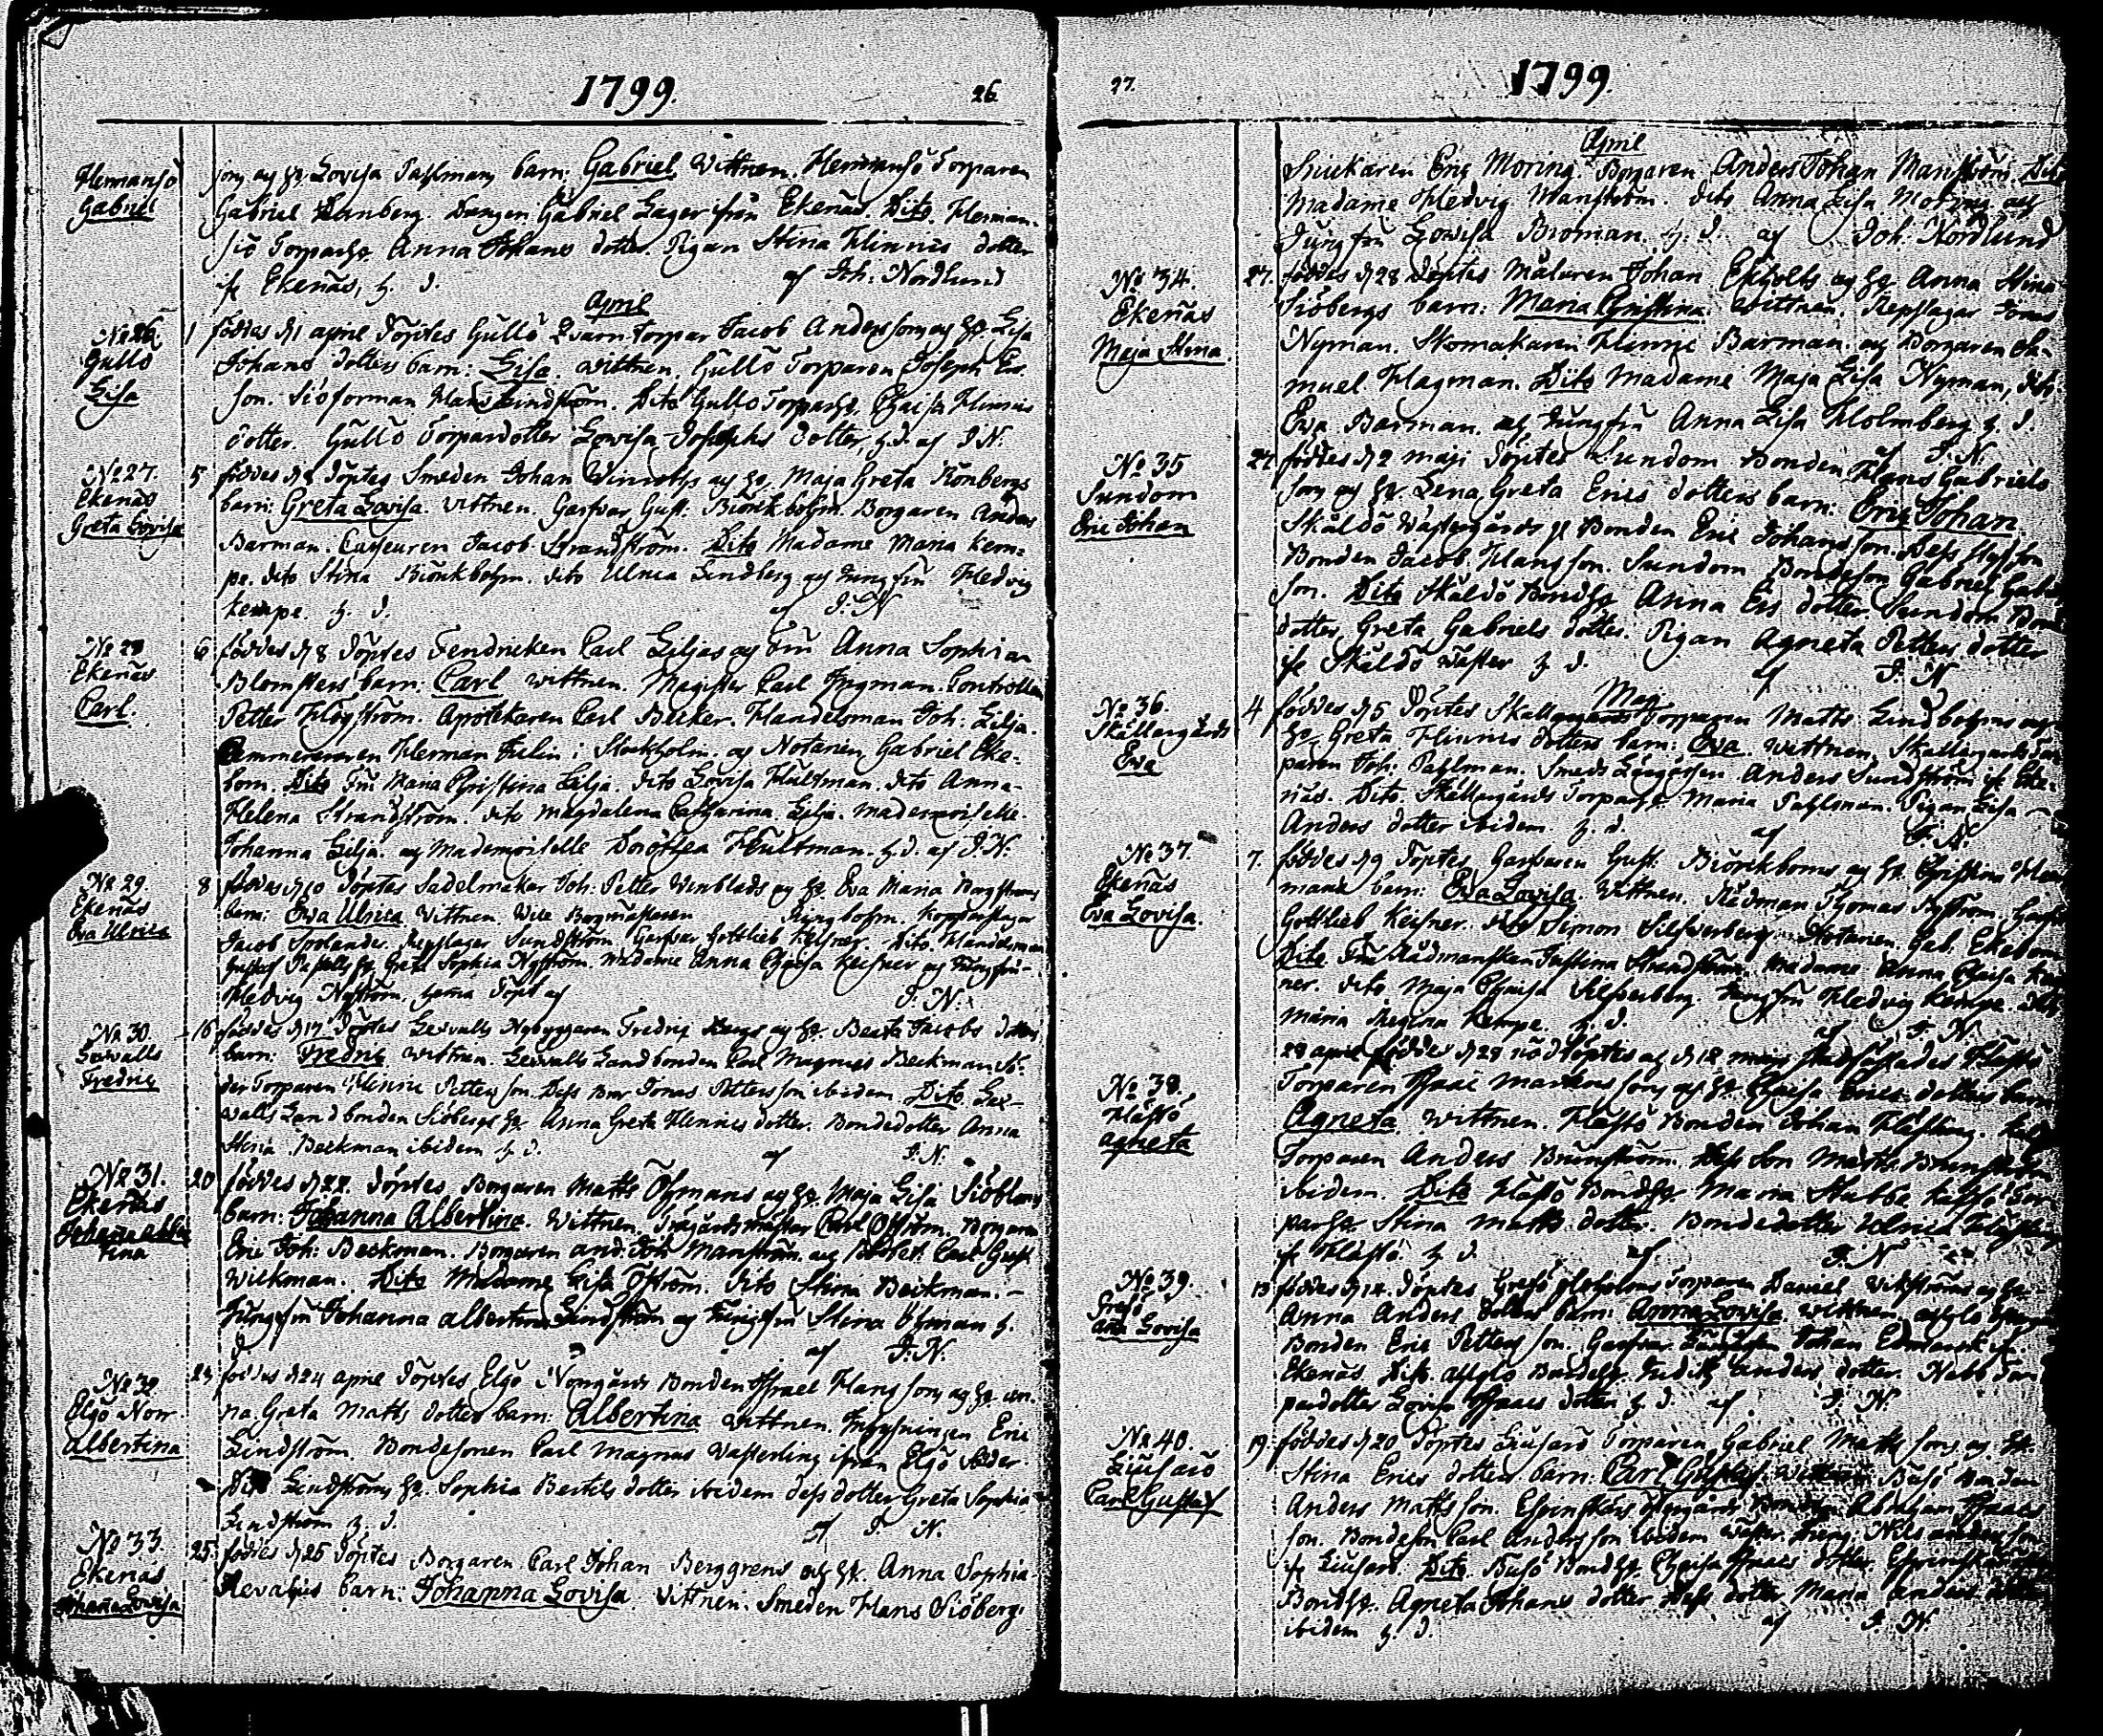 1799.
26
Hermansö
Gabriel
son och hu. Lovisa Pahlmans barn: Gabriel. Wittnen. Hermansö Torparen
Gabriel Dernberg. Drängen Gabriel Lager från Ekenäs. Dito. Herman-
sö Torparhu. Anna Johans dotter. Pigan Stina Hinrics dotter
ifr Ekenäs, h. d. af Joh: Nordlund
April
No 26
Gullö
Lisa
1 föddes d 1 april döptes Gullö Qvarn torpar Jacob Anderssons och hu. Lisa
Johans dotters barn: Lisa. wittnen. Gullö Torparen Joseph Ers-
son. Siöforman Hans Lindström. Dito Gullö Torparhu. Chaisa Hinrics
dotter. Gullö Torpardotter Lovisa Josephs dotter, h. d. af J. N.
No 27.
Ekenäs
Greta Lovisa
5 föddes d 8 döptes Smeden Johan Winroths och hu. Maja Greta Rönbergs
barn: Greta Lovisa. Vittnen. Garfvar Gust: Biörkbohm. Borgaren Anders
Barman. Jacob Strandström. Dito Madame Maria Kem-
pe. dito Stina Biörkbohm. dito Ulrica Lindberg och Jungfru Hedvig
Kempe. h. d. af J. N
No 28
Ekenäs
Carl.
6 föddes d 8 döptes Fendricken Carl Liljas och Fru Anna Sophia
Blomsters barn: Carl wittnen. Magister Carl Ingman. Controllen
Petter Högström. Apotekaren Carl Becker. Handelsman Joh: Lilja.
Cammereraren Herman Felin i Stockholm. och Notarien Gabriel Eke-
bom. Dito Fru Maria Christina Lilja. dito Lovisa Hultman. dito Anna-
Helena Strandström. dito Magdalena Catharina Lilja. Mademoiselle.
Johanna Lilja. och Mademoiselle Dorothea Hultman. h. d. af J. N.
No 29.
Ekenäs
Eva Ulrica
8 föddes d 10 döptes Sadelmakar Joh: Petter Winblads och hu. Eva Maria Bergströms
barn: Eva Ulrica wittnen. Vice Borgmästaren Ringbohm. Kopparslagar
Jacob Repslagar Sundström Garfvar Gottlieb Keisner. Dito. Handelsman
hu. Greta Sophia Nyström. Madame Anna Chaisa Keisner och Jungfru-
Hedvig Nyström. hema döpt af J. N.
No 30.
Lexvalls
Fredric
16 föddes d 17 döptes Lexvalls Nybyggaren Fredric Bergs och hu. Beata Jacobs dotters
barn: Fredric wittnen. Lexvalls Landbonden Carl Magnus Beckman Sö-
der Torparen Hinric Petterson. Dess Bror Jonas Pettersson ibidem. Dito. Lex-
valls Landbonden Siöbergs hu. Anna Greta Hinrics dotter. Bondedotter Anna
Stina Beckman ibidem h. d. af J. N.
No 31.
Ekenäs
Johanna Alber
tina
20 föddes d 22. döptes Borgaren Matts Öhmans och hu. Maja Lisa Siöbloms
barn: Johanna Albertina. Wittnen. Trägårdsmästar Carl Öström. Borgaren
Eric Joh: Beckman. Borgaren And: Joh Manström. och Carl Gust
Wickman. Dito Madame Lisa Öström. dito Stina Beckman. -
Jungfru Johanna Albertina Lindström och Jungfru Stina Öhman h.
d af J. N.
No 32
Elgö Norr
Albertina
23 föddes d 24 april döptes Elgö Norrgårds Bonden Israel Hanssons och hu. An-
na Greta Matts dotters barn: Albertina wittnen. Eric
Lindström. Bondesonen Carl Magnus Västerling ifrån Elgö Söder.
Dito Lindströms hu. Sophia Bertils dotter ibidem dess dotter Greta Sophia
Lindström h. d. af J. N.
No 33.
Ekenäs
Johanna Lovisa
25. föddes d 25 döptes Borgaren Carl Johan Berggrens och hu. Anna Sophia
Revalius barn: Johanna Lovisa. Vittnen. Smeden Hans Siöberg.
27.
1799.
April
Snickaren Eric Moring. Borgaren Anders Johan Manström. Dito
Madame Hedvig Manström. dito Anna Lisa Moring och
Jungfru Lovisa Broman. h. d. af Joh: Nordlund
No 34.
Ekenäs
Maja Stina
27. föddes d 28 döptes Målaren Johan Ekholts och hu. Anna Stina
Siöbergs barn: Maria Christina. wittnen. Repslagar Jonas
Nyman. Skomakaren Hinric Barman. och Borgaren Sa-
muel Hagman. Dito Madame Maja Lisa Nyman, dito
Eva Barman. och Jungfru Anna Lisa Holmberg h. d.
af J. N.
No 35
Sundom
Eric Johan
27 föddes d 2 maji döptes Sundom Bonden Hans Gabriels
son och hu. Lena Greta Erics dotters barn: Eric Johan
Skåldö Wästergårds Bonden Eric Johansson.
Bonden Jacob Hansson. Sundom Bondeson Gabriel
son. Dito Skåldö Bondhu. Anna Ers dotter. Sundom
dotter Greta Gabriels dotter. Pigan Agneta Petters dotter
ifr Skåldö wäster h. d. af J. N
Maij
No 36.
Skällargårds
Eva
4 föddes d 5 döptes Skällargårds Torparen Matts Lindbohms och
hu. Greta Hinrics dotters barn: Eva. wittnen. Skällargårds Tor-
paren Joh: Pahlman. Smeds Lärgåssen Anders Sundström ifr Eke-
näs. Dito. Skällargårds Torparhu. Maria Pahlman. Pigan Lisa
Anders dotter ibidem. h. d. af J. N.
No 37.
Ekenäs
Eva Lovisa.
7. föddes d 9 döptes Garfvaren Gust: Biörkboms och hu. Christina
barn: Eva Lovisa. wittnen. Rådman Thomas Nyström.
Gottlieb Keisner. dito Simon Silfverberg. Notarien Gab. Ekebom
Dito Fru Rådmanskan Justina Strandström. Madame Anna Chaisa Keis-
ner. dito Maja Chaisa Silfverberg. Jungfru Hedvig Kempe. dito
Maria Regina Kempe. h. d. af J. N.
No 38.
Hästö
Agneta
28 april föddes d 29 nöddöptes och d 12 Hästö
Torparen Isaac Martens sons och hu. Chaisa Erics dotters barn
Agneta. wittnen. Hästö Bonden Johan
Torparen Anders Brunström. Dess Son Matts Brunström
ibidem. Dito Hästö Bondhu. Maria Stubbe Tor-
parhu Stina Matts dotter. Bondedotter Ulrica
ifr Hästö h. d. af J. N
No 39.
Gresö
Ana Lovisa
13 föddes d 14. döptes Gresö Torparen Daniel Wikströms och hu.
Anna Anders dotters barn: Anna Lovisa. wittnen
Bonden Eric Petters son. Garfvar Johan Edmarck ifr
Ekenäs. Dito. Bondehu. Judith Anders dotter.
pardotter Lovisa Isaacs dotter h. d. af J. N.
No 40.
Liusarö
Carl Gustaf
19. föddes d 20 döptes Liusarö Torparen Gabriel Matts sons och hu.
Stina Erics dotters barn: Carl Gustaf. Wittnen Busö Bonden
Anders Matts son. Espinskärs Bonden Abraham Isaacs
son. Bondeson Carl Andersson ibidem Nils
ifr Liusarö. Dito. Busö Bondhu. Chaisa Isaacs dotter
Bondhu. Agneta Johans dotter Dess dotter Maria Anders dotter
ibidem h. d. af J. N.